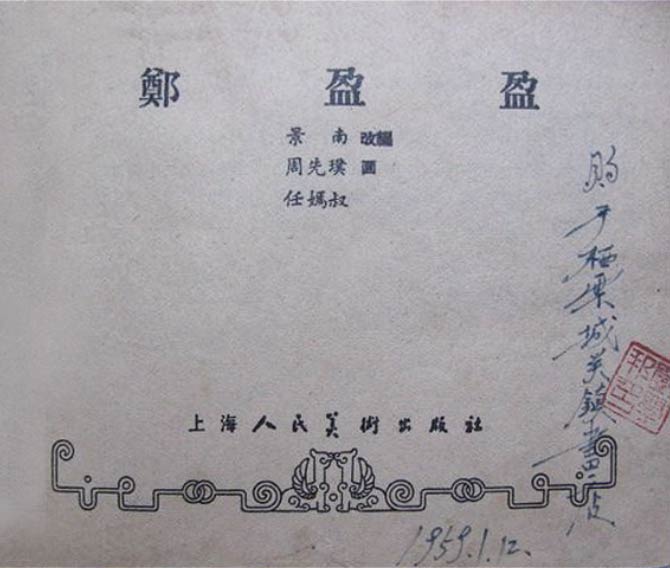 鄭盈盈
景南 改編
周先璞 圖
任媽叔
上海人民美術出版社
購于栖霞城关鎮書店
1959.1.12.